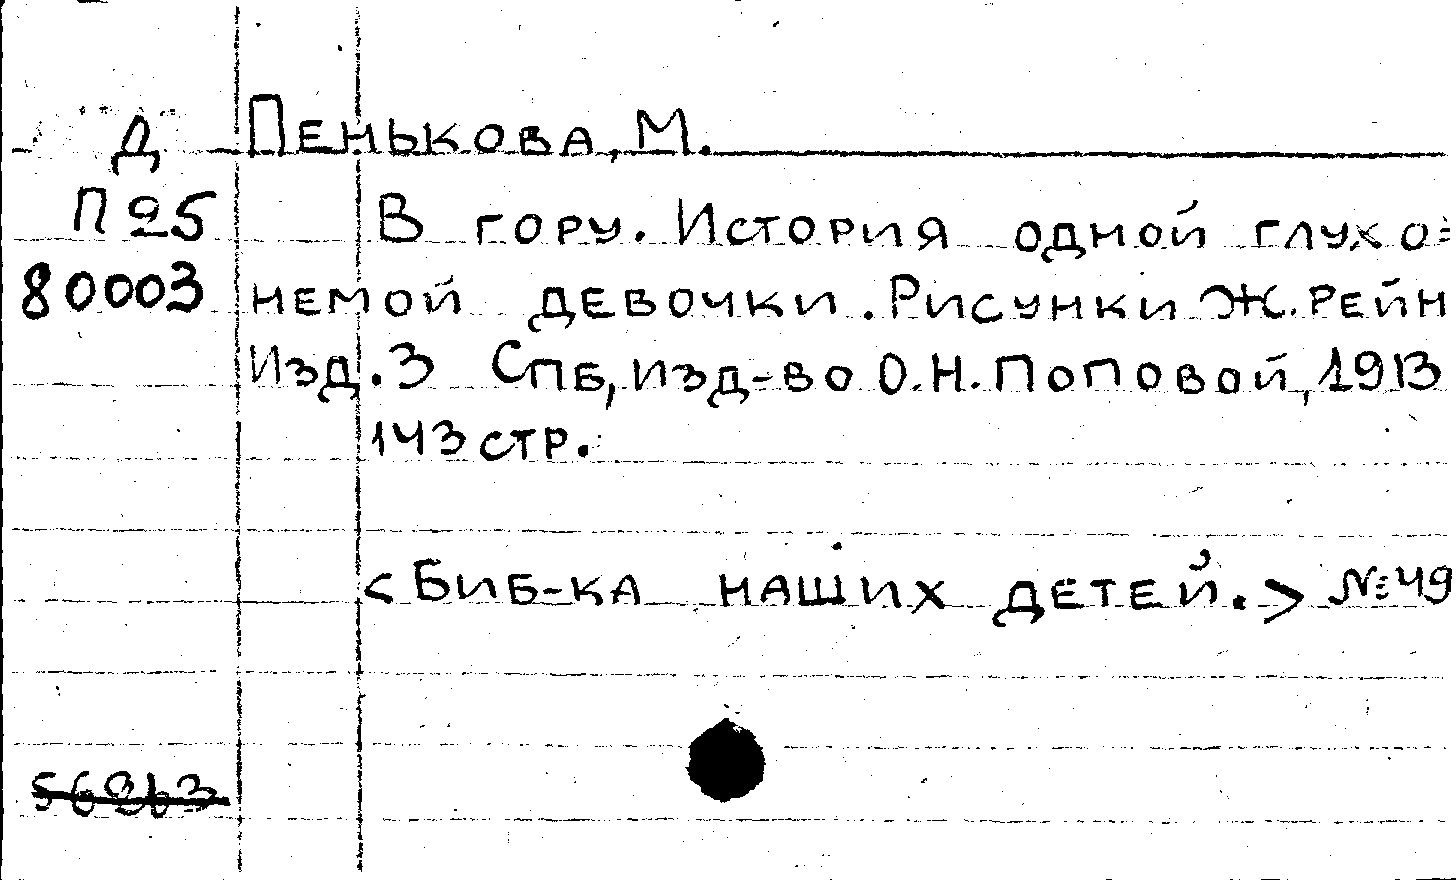 Д Пенькова, М.
П25 В гору. История одной глухо=
80003 немой девочки. Рисунки Ж. Рейн
Изд. 3 Спб, изд-во О.Н. Поповой, 1913
143 стр.
<Биб-ка наших детей.> №49